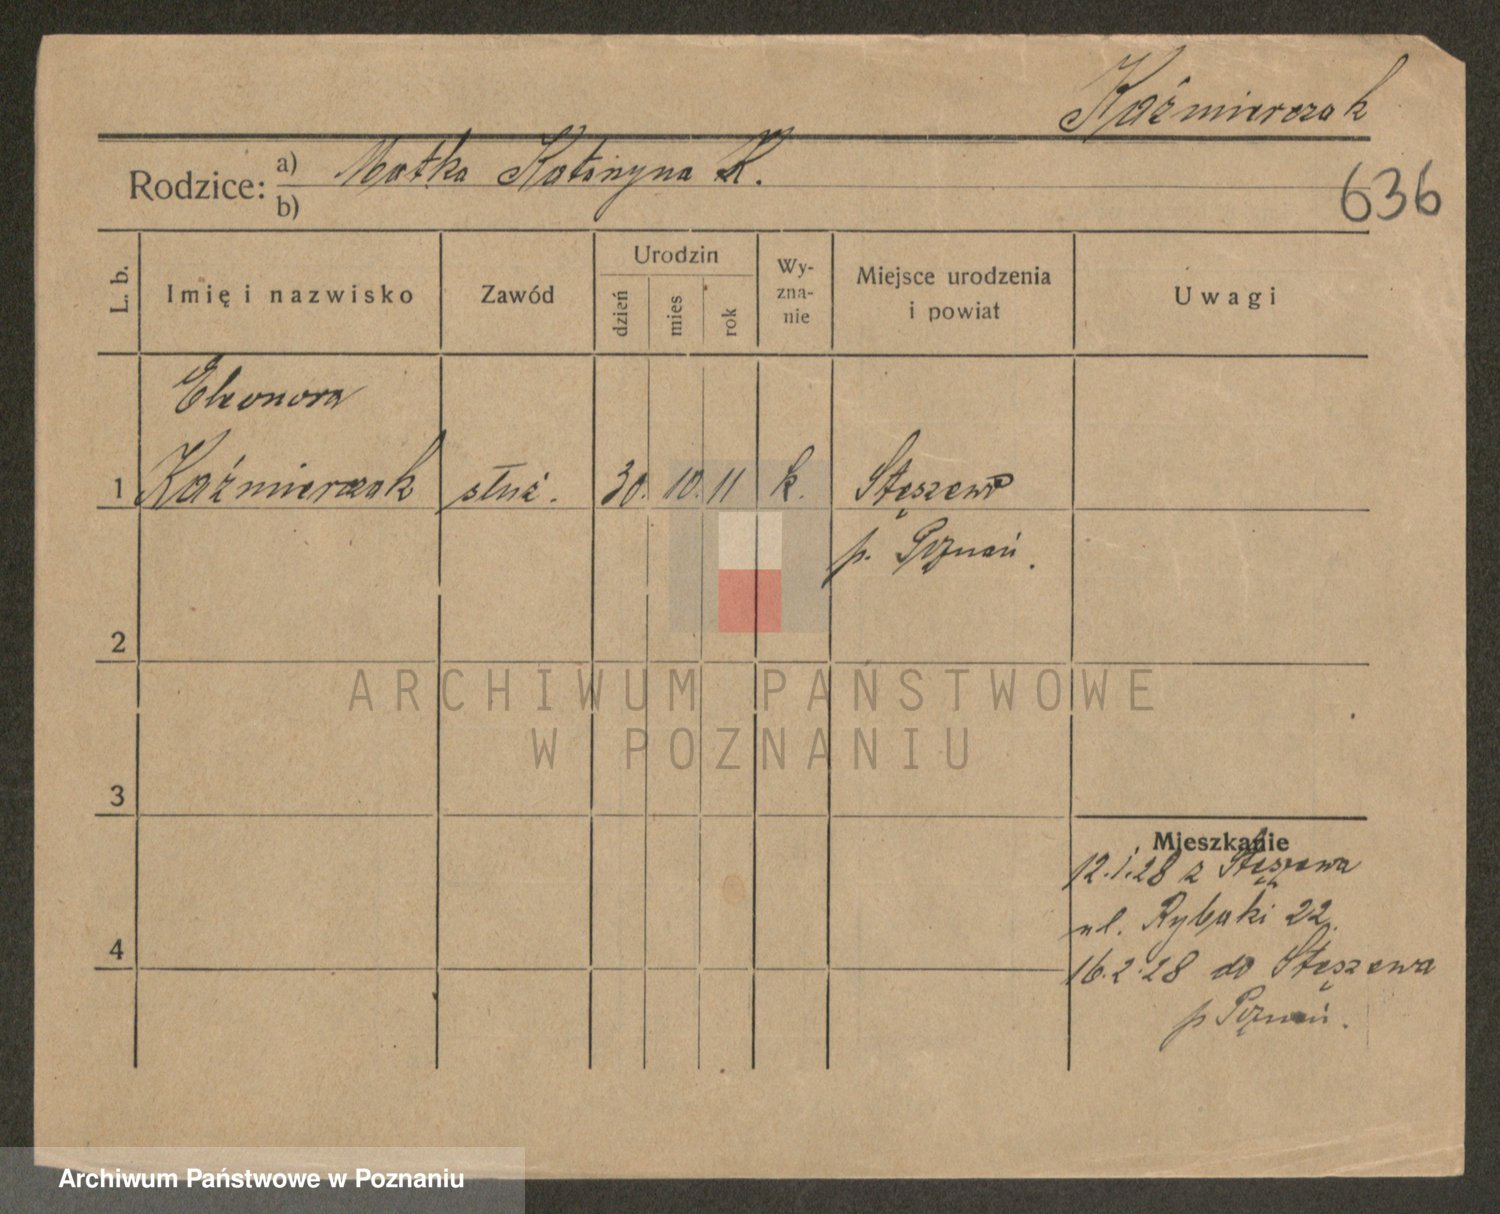 Kaźmierczak
Rodzice: a) Matka Katarzyna K.
b)
636
L. b.
Imię i nazwisko
Zawód
Urodzin
dzień
mies
rok
Wy-
zna-
nie
Miejsce urodzenia
i powiat
Uwagi
Eleonora
1 Kaźmierczak służ. 30. 10. 11 k. Stęszew
p. Poznań.
2
ARCHIWUM PAŃSTWOWE
W POZNANIU
3
Mieszkanie
12.1.28 z Stęszewa
ul. Rybaki 22.
4
16.2.28 do Stęszewa
p Poznań.
Archiwum Państwowe w Poznaniu